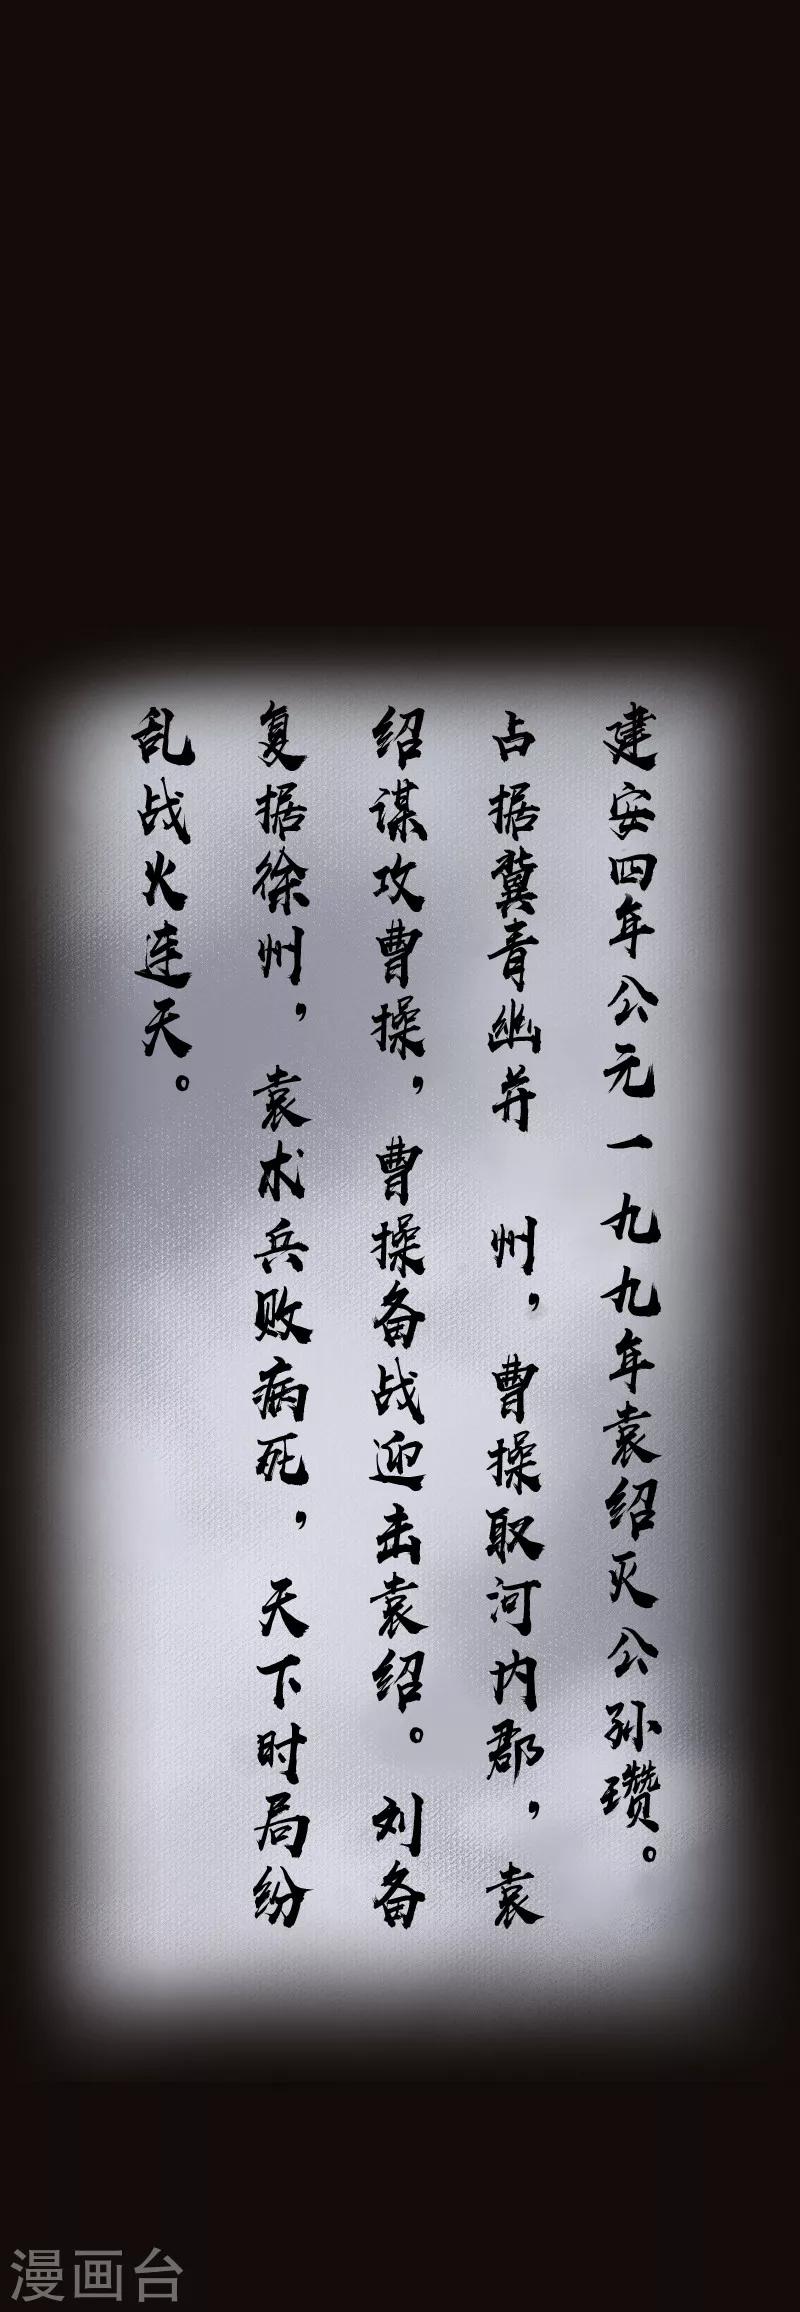 建安四年公元一九九年袁绍灭公孙瓒。
占据冀青幽并 州，曹操取河内郡，袁
绍谋攻曹操，曹操备战迎击袁绍。刘备
复据徐州，袁术兵败病死，天下时局纷
乱战火连天。
漫画台